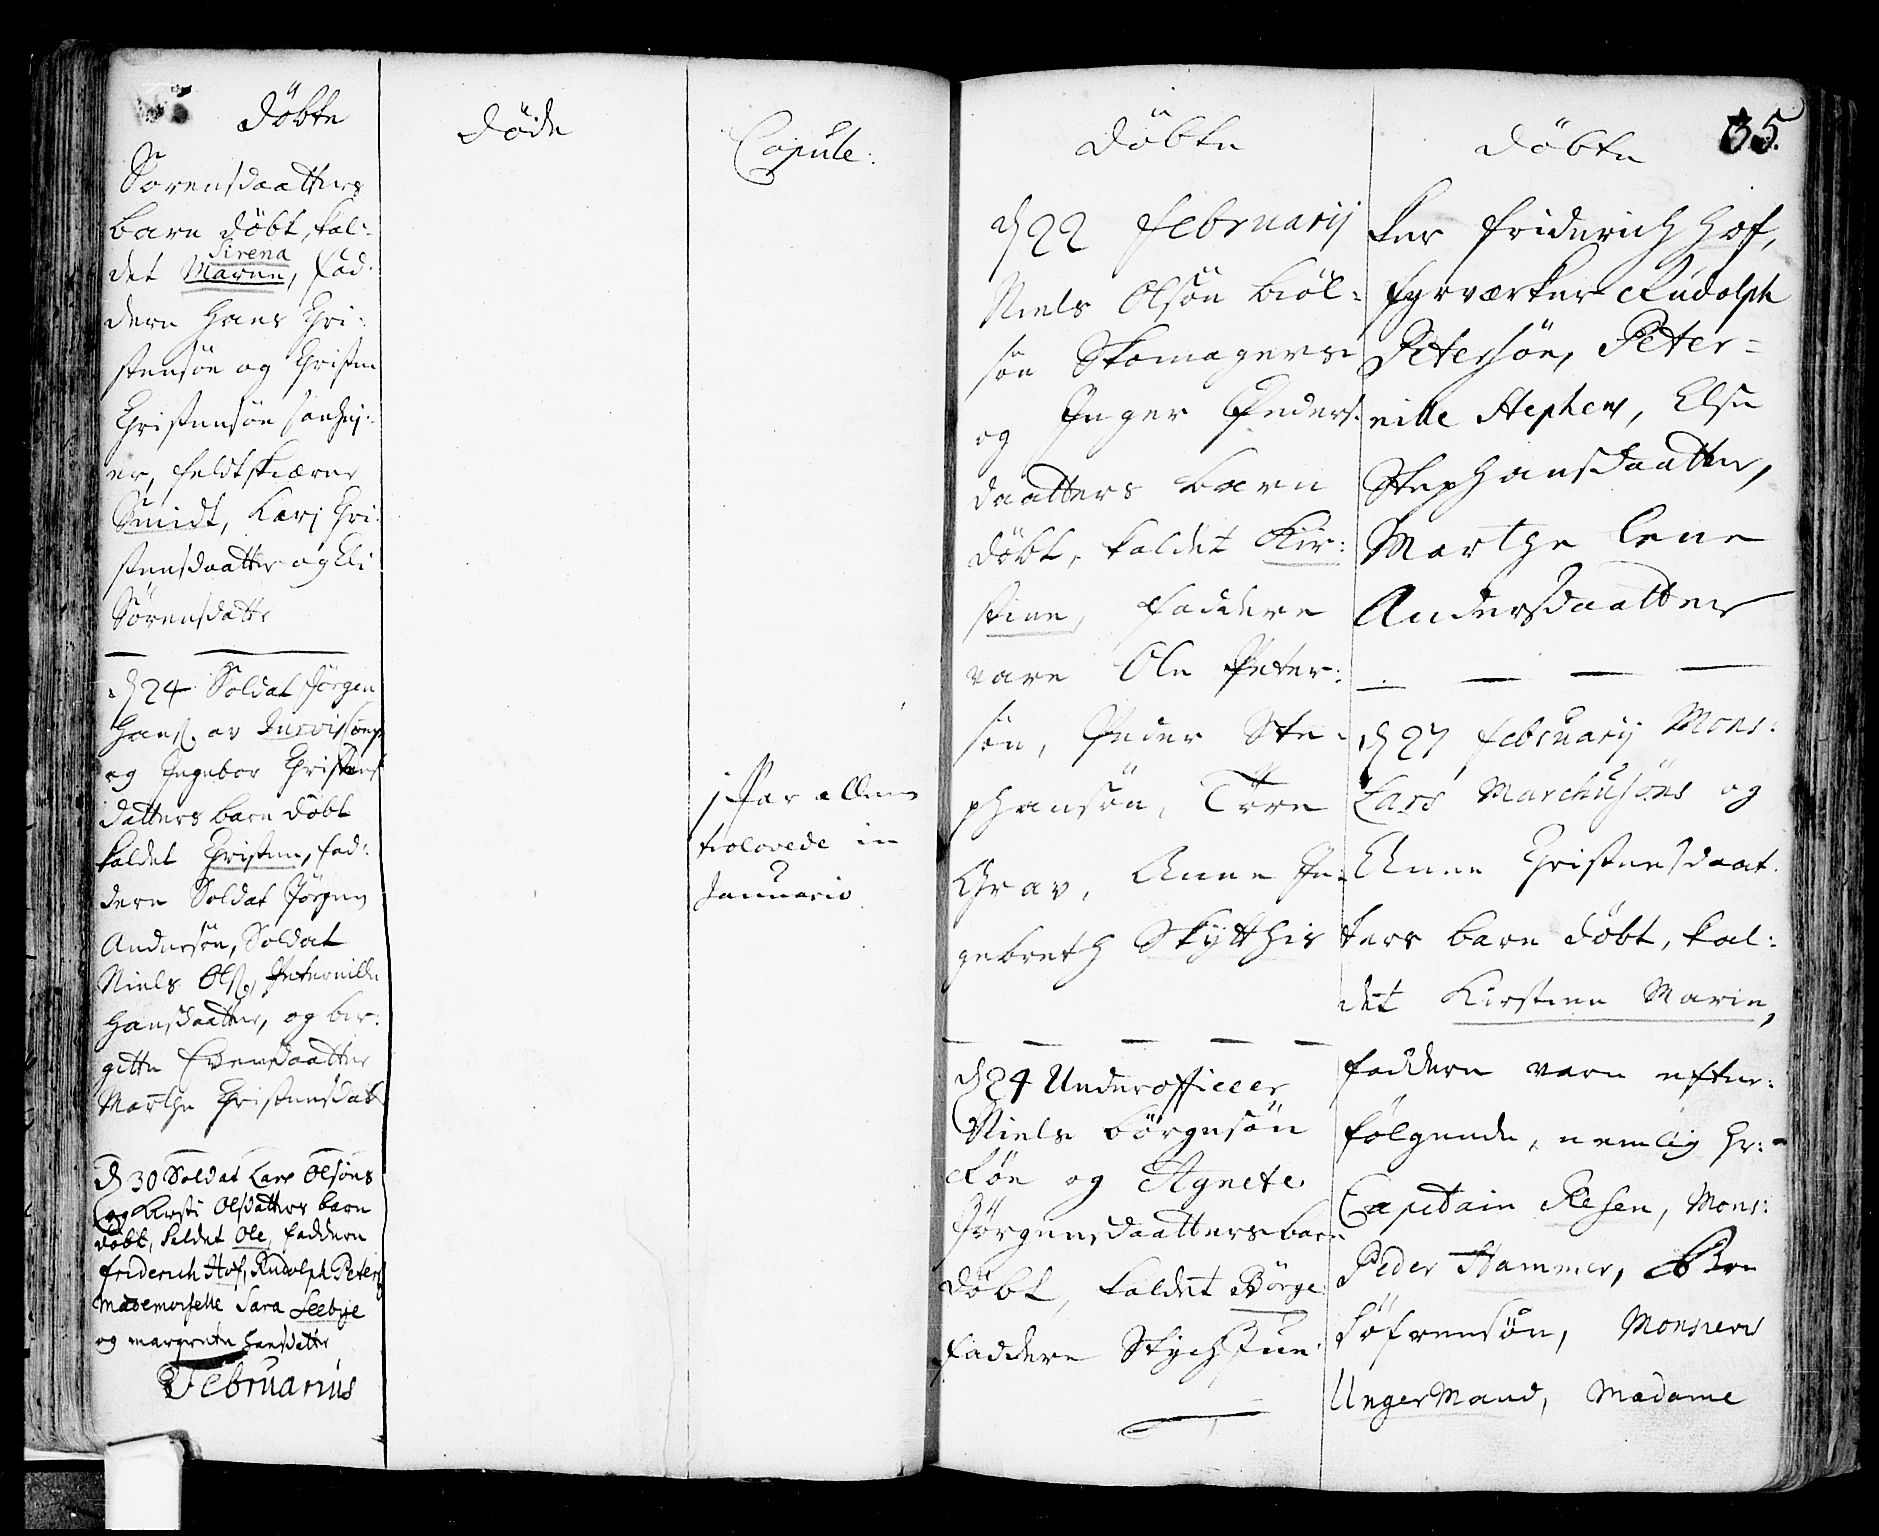 Döbte
Sörensdaatters
barn döbt, kal:
Sirena
det Maren, fad:
dere Hans Chri:
stensön og Christen
Christensön
er, feldtskiærer
Smidt, Kari Chri:
stensdaatter og Eli
Sörensdatter
d 24 Soldat Jörgen
Hans. av
og Ingebor Christens
datters barn döbt
kaldet Christen, fad:
dere Soldat Jörgen
Andersön, Soldat
Niels Ols, Peternille
Hansdaatter, og bir:
gitte Evensdaatter
Marthe Christensdat
d 30 Soldat Lars Olsöns
og Kirsti Olsdatters barn
döbt, kaldet Ole, faddere
friderich Hof, Rudolph Peters
Mademoiselle Sara Seebye
og margrete Hansdatter
Februarius
Döde
Copule:
1 Par allene
trolovede in
Januario
Döbte
d 22 februarij
Niels Olsön
sön Skomagers
og Inger Peders:
daatters barn
döbt, kaldet Kir:
stine, faddere
vare Ole Peter:
sön, Peder Ste:
phansön, Tore
Grav, Anne In:
gebreth Skÿtthis
d 24 Underofficeer
Niels Börgesön
Rön og Agnete
Jörgensdaatters barn
döbt, kaldet Börge
faddere
Döbte
35.
ker friderich Hof,
fyrværker Rudolph
Petersön, Peter=
nille Stephens, Else
Stephansdaatter,
Marthe Lene
Andersdaatter
d 27 februarij Mons:
Lars Marchusöns og
Anne Christensdaat
ters barn döbt, kal:
det Kirstine Marie,
faddere vare efter:
fölgende, nemlig Hr:
Capitain Resen, Mons:
Peder Hammer,
Söfrensön, Monsieur
Ungermand, Madame